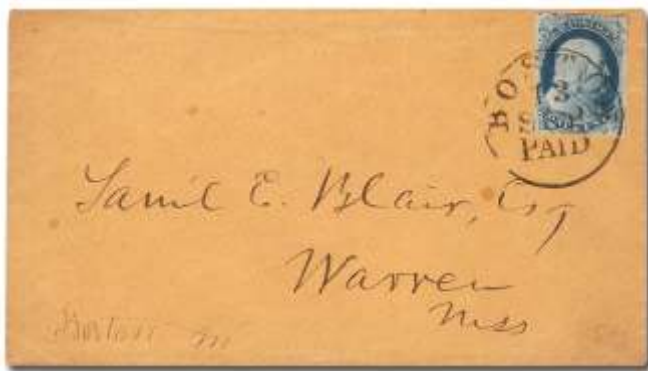 BOSTON
3
PAID
Saml E. Blair, Esq
Warren
Mss
Boston m